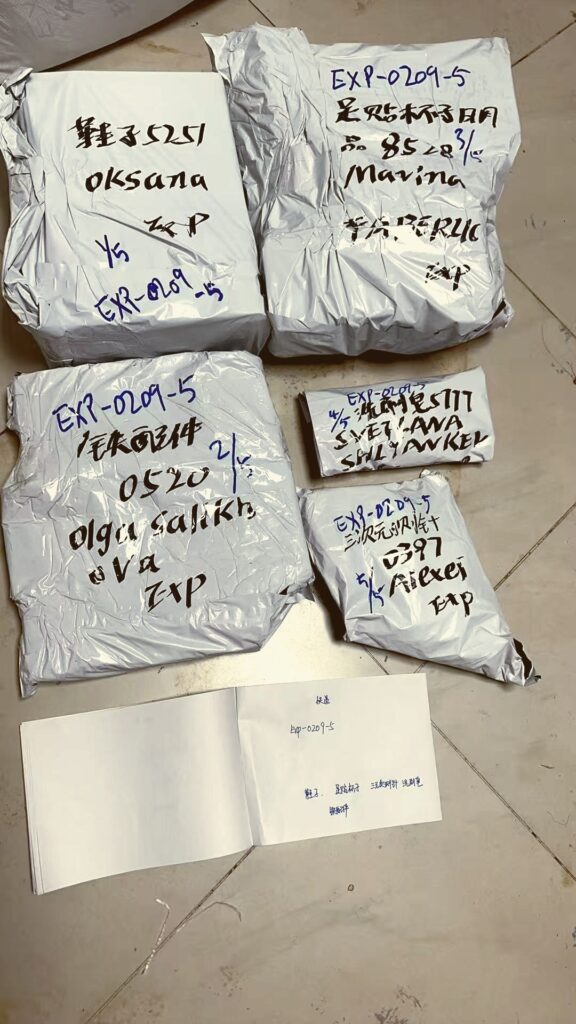 鞋子5251
oksana
Exp
1/5
EXP-0209-5
EXP-0209-5
足贴杯子日用
品 8528 3/5
Marina
FABERLIC
Exp
EXP-0209-5
铁配件
0520 2/5
Olga Salikh
ova
Exp
EXP-0209-5
4/5 洗耐皂5777
SVETLANA
SHLYANKEV
EXP-0209-5
三次元测针
0397
5/5 Alexei
Exp
快递
Exp-0209-5
鞋子. 足贴杯子 三次元测针 洗耐皂
铁配件